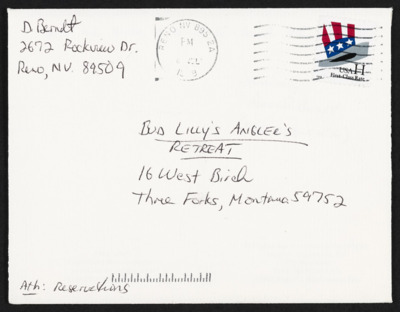 D Berndt
2672 Rockview Dr.
Reno, NV. 89509
RENO NV 895
PM
USA H
First-Class Rate
BUD LILLY'S ANGLER'S
RETREAT
16 West Birch
Three Forks, Montana 59752
Attn: Reservations